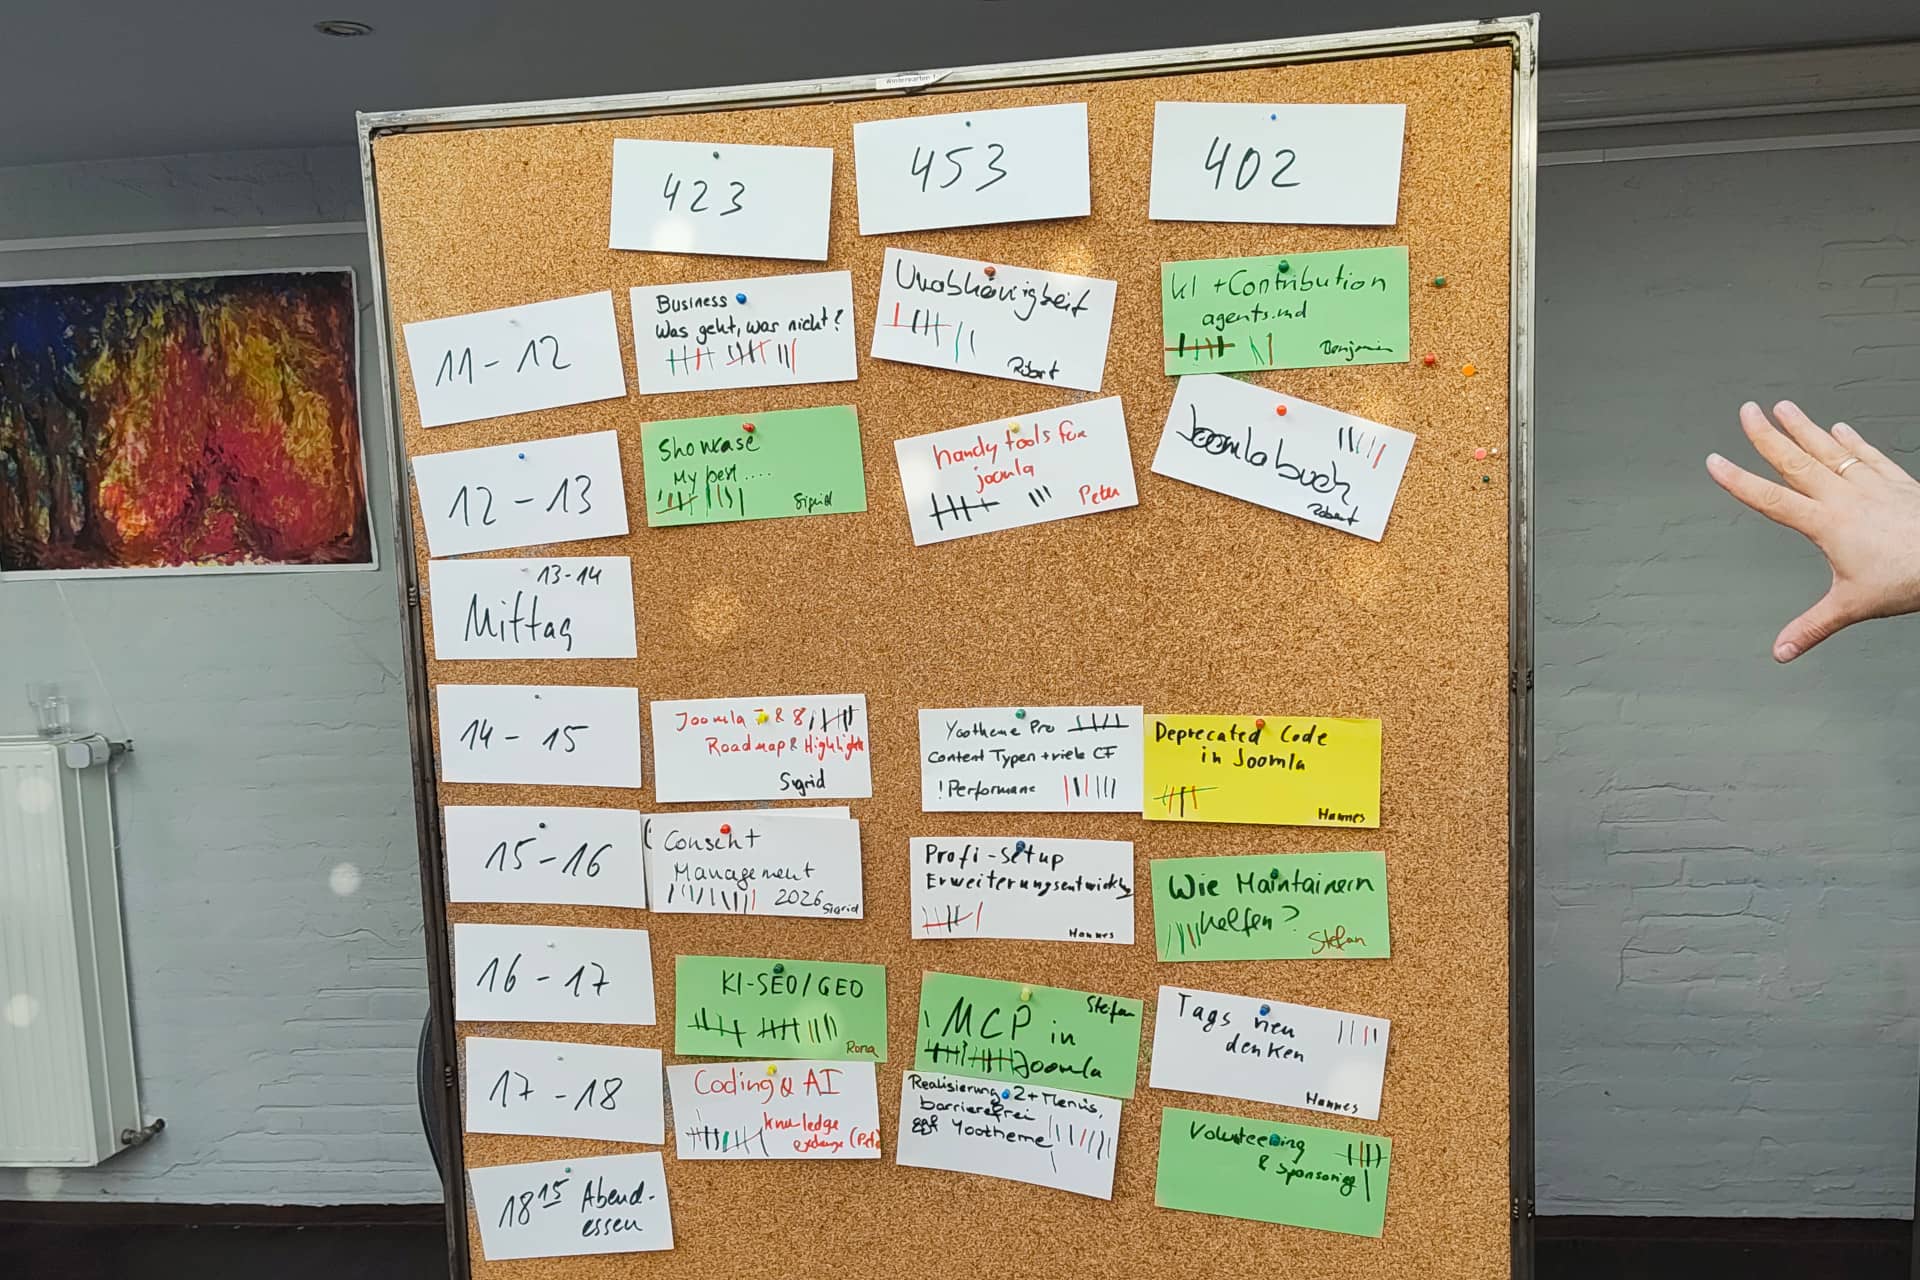 423
453
402
11 - 12
Business
Was geht, was nicht?
Unabhängigkeit
Robert
KI + Contribution
agents.md
Benjamin
12 - 13
Showcase
My best....
Sigrid
handy tools for
joomla
Peter
Joomlabuch
Robert
13-14
Mittag
14 - 15
Joomla 7 & 8
Roadmap & Highlights
Sigrid
Yootheme Pro
Content Typen + viele CF
! Performanc
Deprecated Code
in Joomla
Hannes
15-16
Consent
Management
2026
Sigrid
Profi-Setup
Erweiterungsentwicklg
Hannes
Wie Maintainern
helfen?
Stefan
16 - 17
KI-SEO/GEO
Rona
Stefan
MCP in
Joomla
Tags neu
denken
Hannes
17 - 18
Coding & AI
knowledge
Realisierung 2+ Menüs,
barrierefrei
ggf Yootheme
Volunteering
& Sponsoring
18 15 Abend-
essen